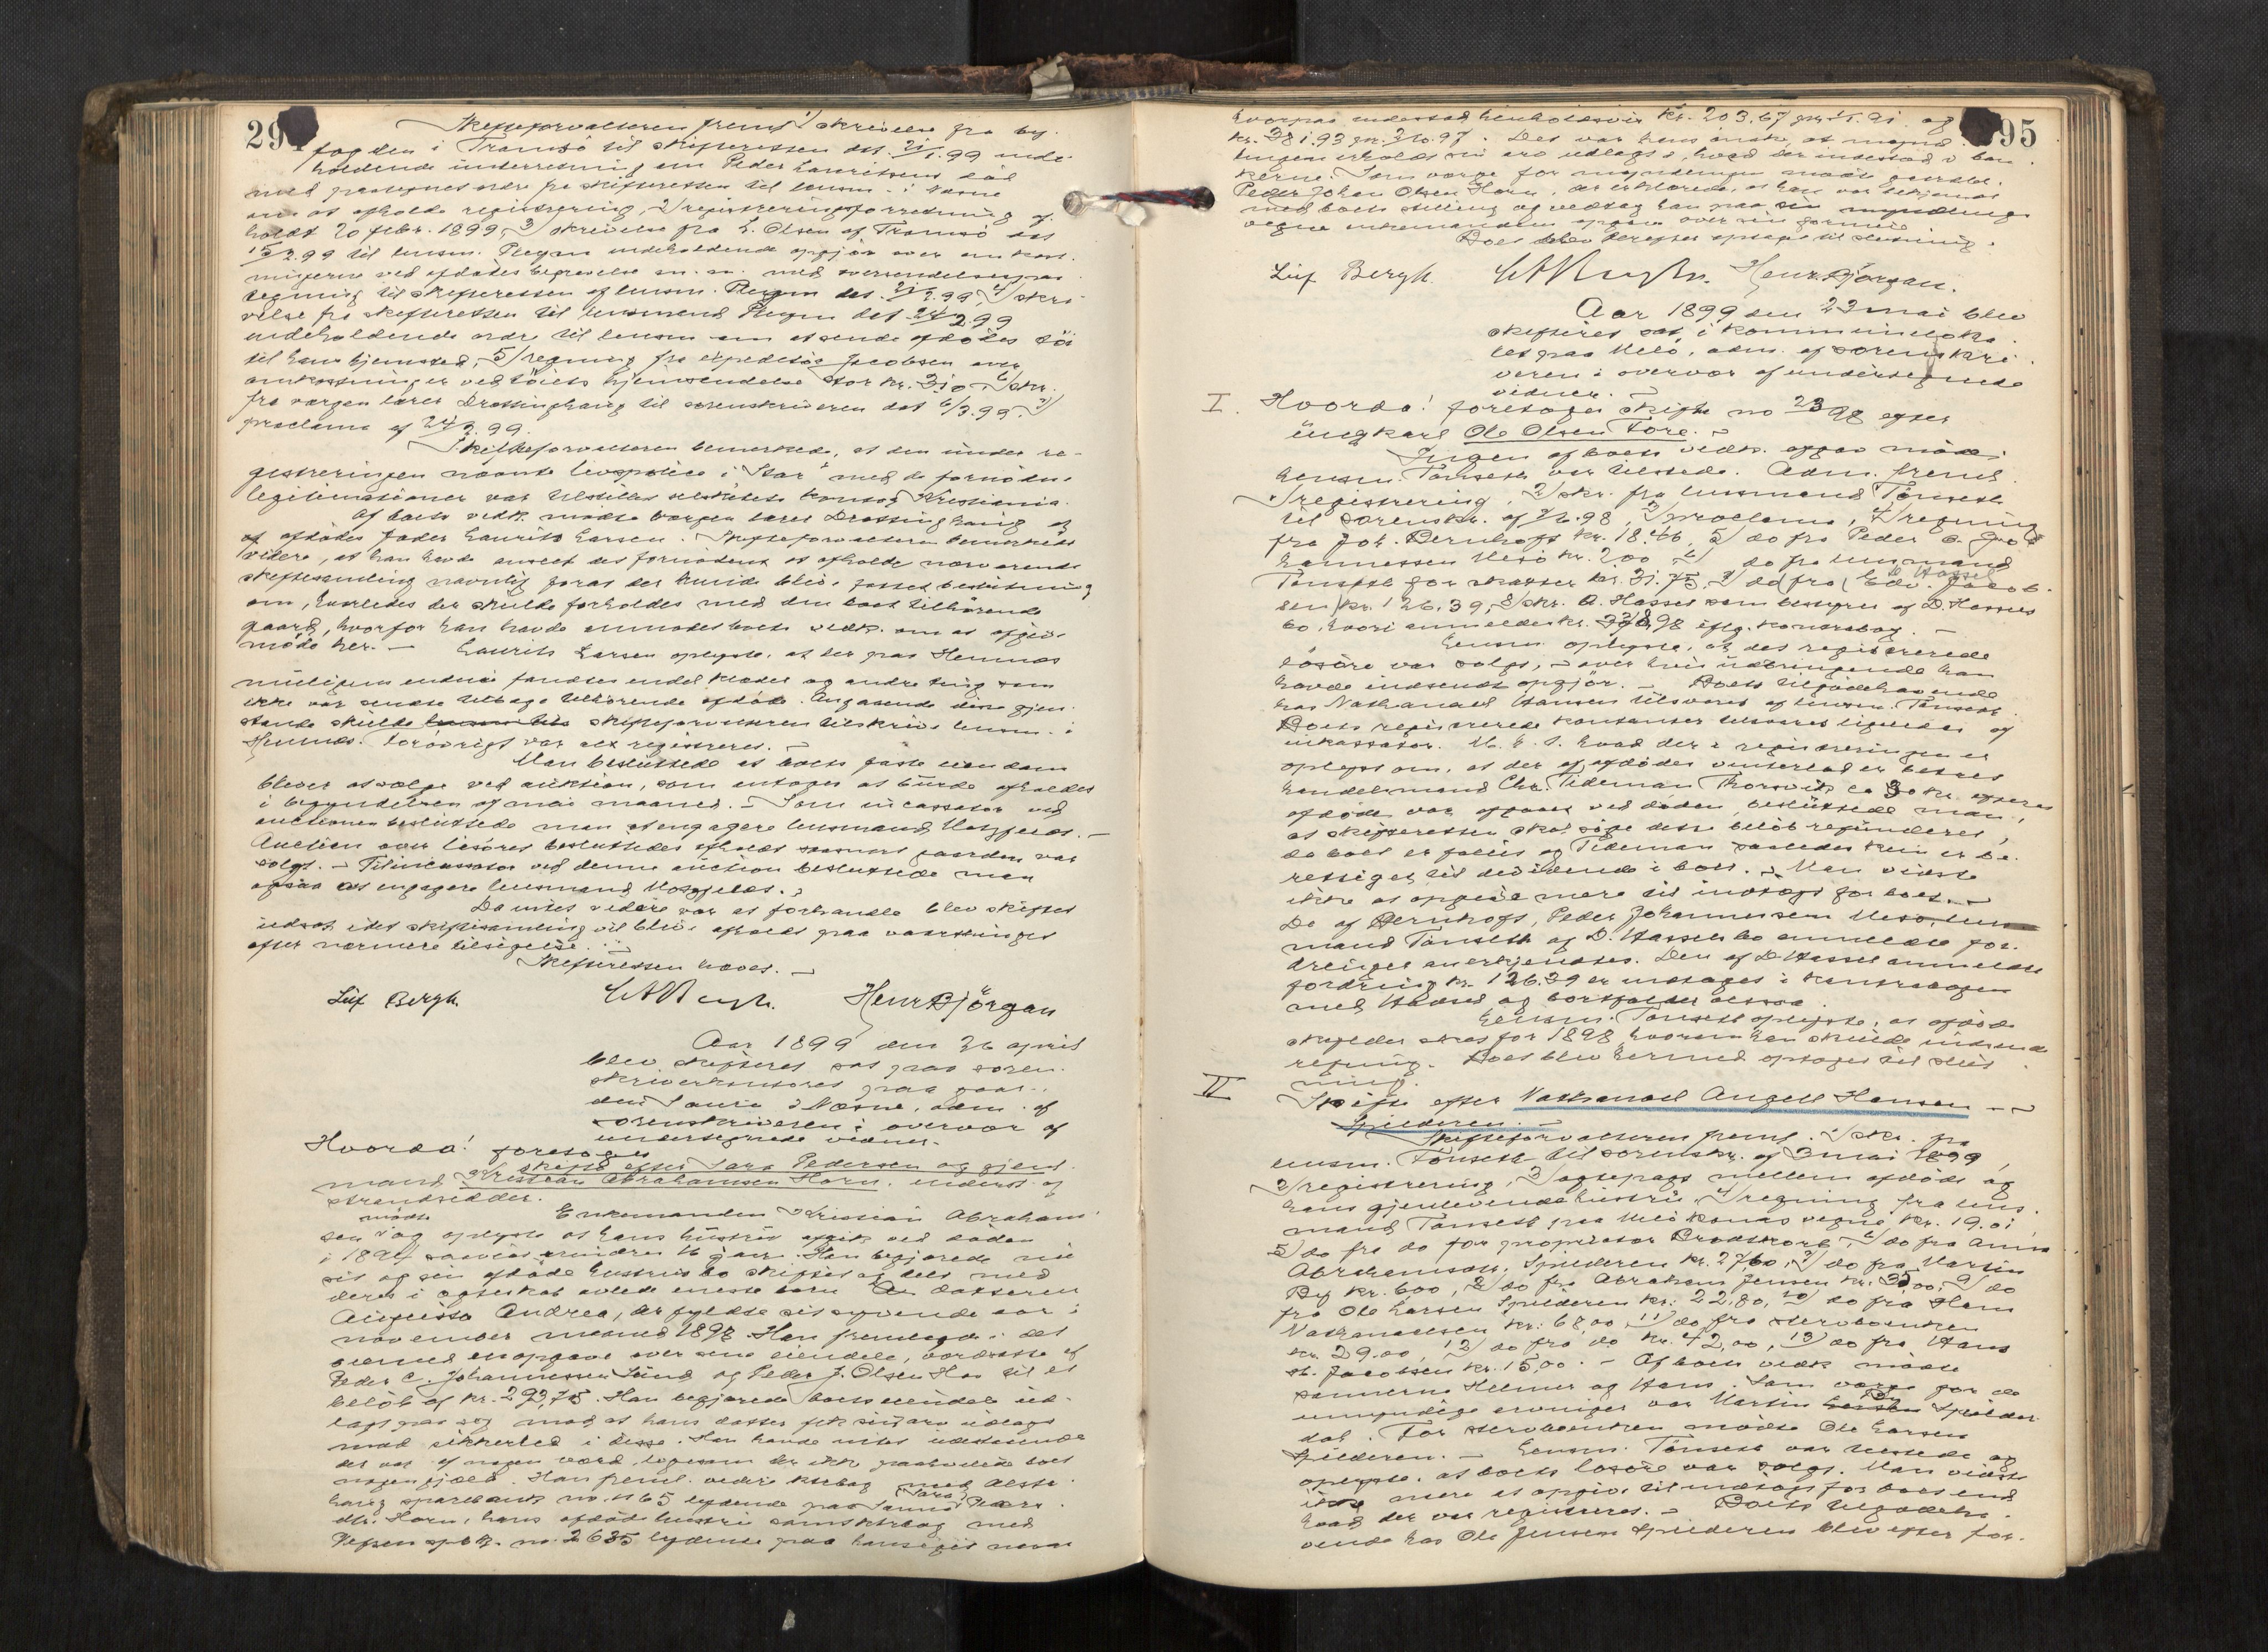 29
Skifteforvalteren freml 1) skrivelse fra by-
fogden i Tromsö til skifteretten dat. 21/1.99 inde-
holdende underretning om Peder Lauritsens död
med paategnet ordre fra skifteretten til lensm. i
om at afholde registrering, 2) registreringsforretning af-
holdt 20 febr. 1899, 3) skrivelse fra L. Olsen af Tromsö dat
15/2.99 til lensm. indeholdende opgjör over omkost-
ningerne ved afdödes begravelse m. m. med oversendelsespaa-
tegning til skifteretten af lensm. dat. 21/2.99, 4) skri-
velse fra skifteretten til lensmand dat 24/2.99
indeholdende ordre til lensm om at sende afdödes töi
til hans hjemsted, 5) regning fra expeditör Jacobsen over
omkostninger ved töiets hjemsendelse stor kr. 3,10 6) skr.
fra værgen lærer Drattinghaug til sorenskriveren dat 6/3.99. 7)
proclama af 24/2.99.
Skifteforvalteren bemærkede, at den under re-
gistreringen nævnte livspolice i "Star" med de fornödne
legitimationer var tilstillet selskabets kontor Kristiania.
Af boets vedk. mödte værgen lærer Drattinghaug og
afdödes fader Laurits Larsen. Skifteforvalteren bemærkede
videre, at han havde anseet det fornödent at afholde nærværende
skiftesamling navnlig foraat der kunde blive fattet beslutning
om, hvorledes der skulde forholdes med den boet tilhörende
gaard, hvorfor han havde anmodet boets vedk. om at afgive
möde her. — Laurits Larsen oplyste, at der paa Hemnæs
muligens endnu fandtes endel klæder og andre ting som
ikke var sendte tilbage tilhörende afdöde. Angaaende disse gjen-
stande skulde skifteforvalteren tilskrive lensm. i
Hemnæs. Forövrigt var alt registreret. —
Man besluttede at boets faste eiendom
bliver at sælge ved auktion, som antages at burde afholdes
i begyndelsen af mai maaned. — Som incassator ved
auctionen besluttede man at engagere lensmand . —
Auction over lösöret besluttedes afholdt gaarden var
solgt. — Til incassator ved denne auction besluttede man
ogsaa at engagere lensmand .
Da intet videre var at forhandle blev skiftet
udsat idet skiftesamling vil blive afholdt paa vaartinget
efter nærmere tilsigelse. —
Skifteretten hævet. —
Leif Bergh. Henr Björgan
Aar 1899 den 26 april
blev skifteret sat paa soren-
skriverkontoret paa gaar-
den i Næsne, adm. af
sorenskriveren i overvær af
undertegnede vidner.
Hvorda! foretoges
skifte efter Sara Pedersen og gjenl.
mand Kristian Abrahamsen Horn, inderst og
strandsidder.
Enkemanden Kristian Abraham-
sen mödte og oplyste at hans hustru afgik ved döden
i 1894 saavidt erindres 16 . Han begjærede nu
sit og sin afdöde hustrus bo skiftet og delt med
deres i ægteskab avlede eneste barn datteren
Augusta Andrea, der fyldte sit syvende aar i
november maaned 1898. Han fremlagde i det
öiemed en opgave over sine eiendele, vurderte af
Peder C. Johannessen Sund og Peder J. Olsen Horn til et
belöb af kr. 292,75. Han begjærede boets eiendele ud-
lagt paa sig mod at hans datter fik sin arv udlagt
mod sikkerhed i disse. Han havde intet udestaaende
der var af nogen værd, ligesom der ikke paahvilede boet
nogen gjæld. Han freml. videre ktrbog med Alsta-
haug sparebank no. 1165 lydende paa (Sara) Peders-
dtr. Horn, hans afdöde hustru samt ktrbog med
Vefsen spbk. no. 2635 lydende paa hans eget navn
95
hvorpaa indestod henholdsvis kr. 203,67 pr. . og
kr. 381.93 pr. . Det var hans önske, at mynd-
lingen erholdt sin arv udlagt i, hvad der indestod i ban-
kerne. Som værge for myndlingen mödte gaardbr.
Peder Johan Olsen Horn, der erklærede, at han var bekjendt
med boets stilling og vedtog han paa sin myndlings
vegne enkemandens opgave over sin formue.
Boet blev derefter optaget til slutning.
Leif Bergh. Henr. Björgan.
Aar 1899 den 23 mai blev
skifteret sat i kommuneloka-
let paa Melö, adm. af sorenskri-
veren i overvær af undertegnede
vidner. —
I. Hvorda! foretoges skifte no 23/98 efter
ungkarl Ole Olsen Fore. —
Ingen af boets vedk. afgav möde.
Lensm. Tönseth var tilstede. Adm. freml.
1) registrering, 2) skr. fra lensmand Tönseth
til sorenskr. af .98, 3) proclama, 4) regning
fra Joh. Bernhoft kr. 18.46, 5) do fra Peder
hannessen Mesö kr. 200 6) do fra lensmand
Tönseth for skatter kr. 31.75, 7) do fra (D. Hassel)
sen kr. 126.39, 8) skr. A. Hassel som bestyrer af D. Hassels
bo, hvori anmeldes kr. iflg. kontrabog. —
Lensm. oplyste, at det registrerede
lösöre var solgt, over hvis udbringende han
havde indsendt opgjör. — Boets tilgodehavende
hos Nathanael Hansen tilsvares af lensm. Tönseth.
Boets registrerede kontanter tilsvares ligeledes af
inkassator. M. h. t. hvad der i registreringen er
oplyst om, at der af afdödes efterlad er betalt
handelsmand Chr. Tideman Thorsvik ca 30 kr. efterat
afdöde var afgaaet ved döden, besluttede man,
at skifteretten skal söge dette belöb refunderet,
da boet er fallit og Tideman saaledes kun er be-
rettiget til dividende i boet. — Man vidste
ikke at opgive mere til indtægt for boet. —
De af Bernhoft, Peder Johannessen Mesö, lens-
mand Tönseth og D. Hassels bo anmeldte for-
dringer anerkjendtes. Den af D. Hassel anmeldte
fordring kr. 126.39 er indtaget i kontrabogen
med Hassel og bortfalder altsaa.
Lensm. Tönseth oplyste, at afdöde
skylder skat for 1898 hvorom han skulde indsende
regning. Boet blev hermed optaget til slut-
ning.
II Skifte efter Nathanael Angell Hansen —
Spilderen. —
Skifteforvalteren freml. 1) skr. fra
lensm. Tönseth til sorenskr. af 3 mai 1899,
2) registrering, 3) ægtepagt mellem afdöde og
hans gjenlevende hustru, 4) regning fra lens-
mand Tönseth paa Melö vegne kr. 19.01,
5) do fra do for proprietær Brodtkorb, 6) do fra Anna
Abrahamsen, Spilderen kr. 27,60, 7) do fra Martin
By kr. 600, 8) do fra Abraham Jensen kr. , 9) do
fra Ole Larsen Spilderen kr. 22,80, 10) do fra Hans
Nathanaelsen kr. 68,00 11) do fra stervboenken
kr. 29.00, 12) do fra do kr. 42,00, 13) do fra Hans
Jacobsen kr. 15,00. — Af boets vedk mödte
sönnerne Helmer og Hans. Som værge for de
umyndige arvinger var Martin By Spilder-
dal. For stervboenken mödte Ole Larsen
Spilderen. — Lensm. Tönseth var tilstede og
oplyste, at boets lösöre var solgt. Man vidste
ikke mere at opgive til indtægt for boet end
hvad der var registreret. — Boets tilgodeha-
vende hos Ole Jensen Spilderen blev efter for-